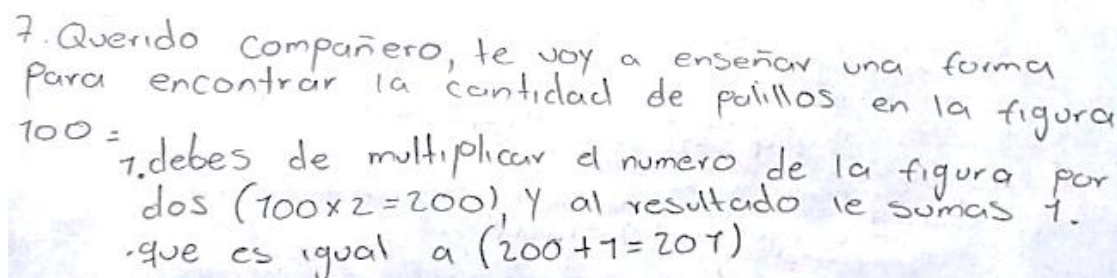 7. Querido compañero, te voy a enseñar una forma
Para encontrar la cantidad de palillos en la figura
100 =
1. debes de multiplicar el numero de la figura por
dos (100x2=200), Y al resultado le sumas 1.
.que es igual a (200+1=201)